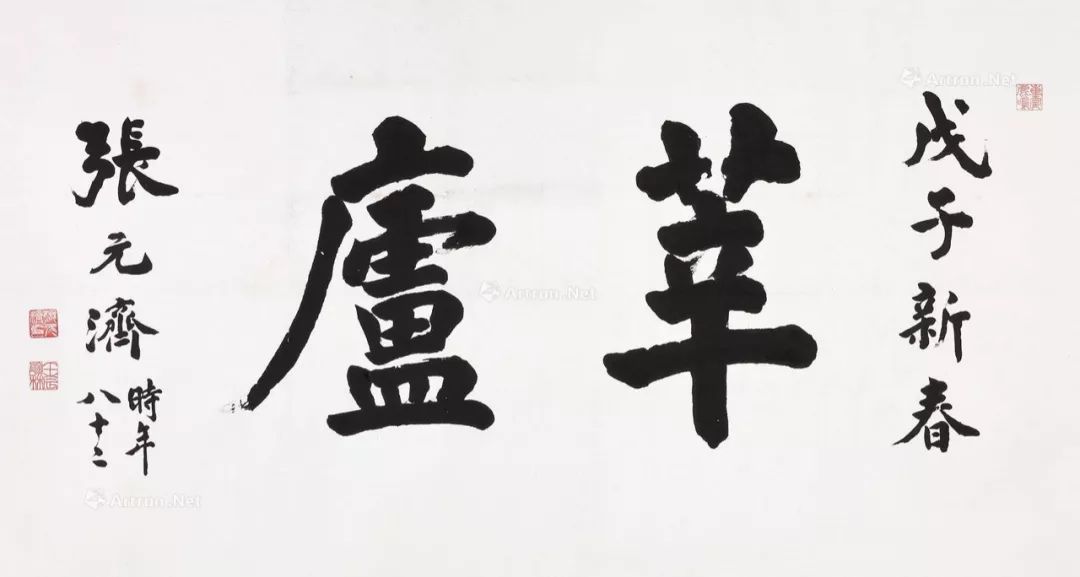 戊子新春
莘廬
張元濟
時年
八十二
Artron.Net
Artron.Net
Artron.Net